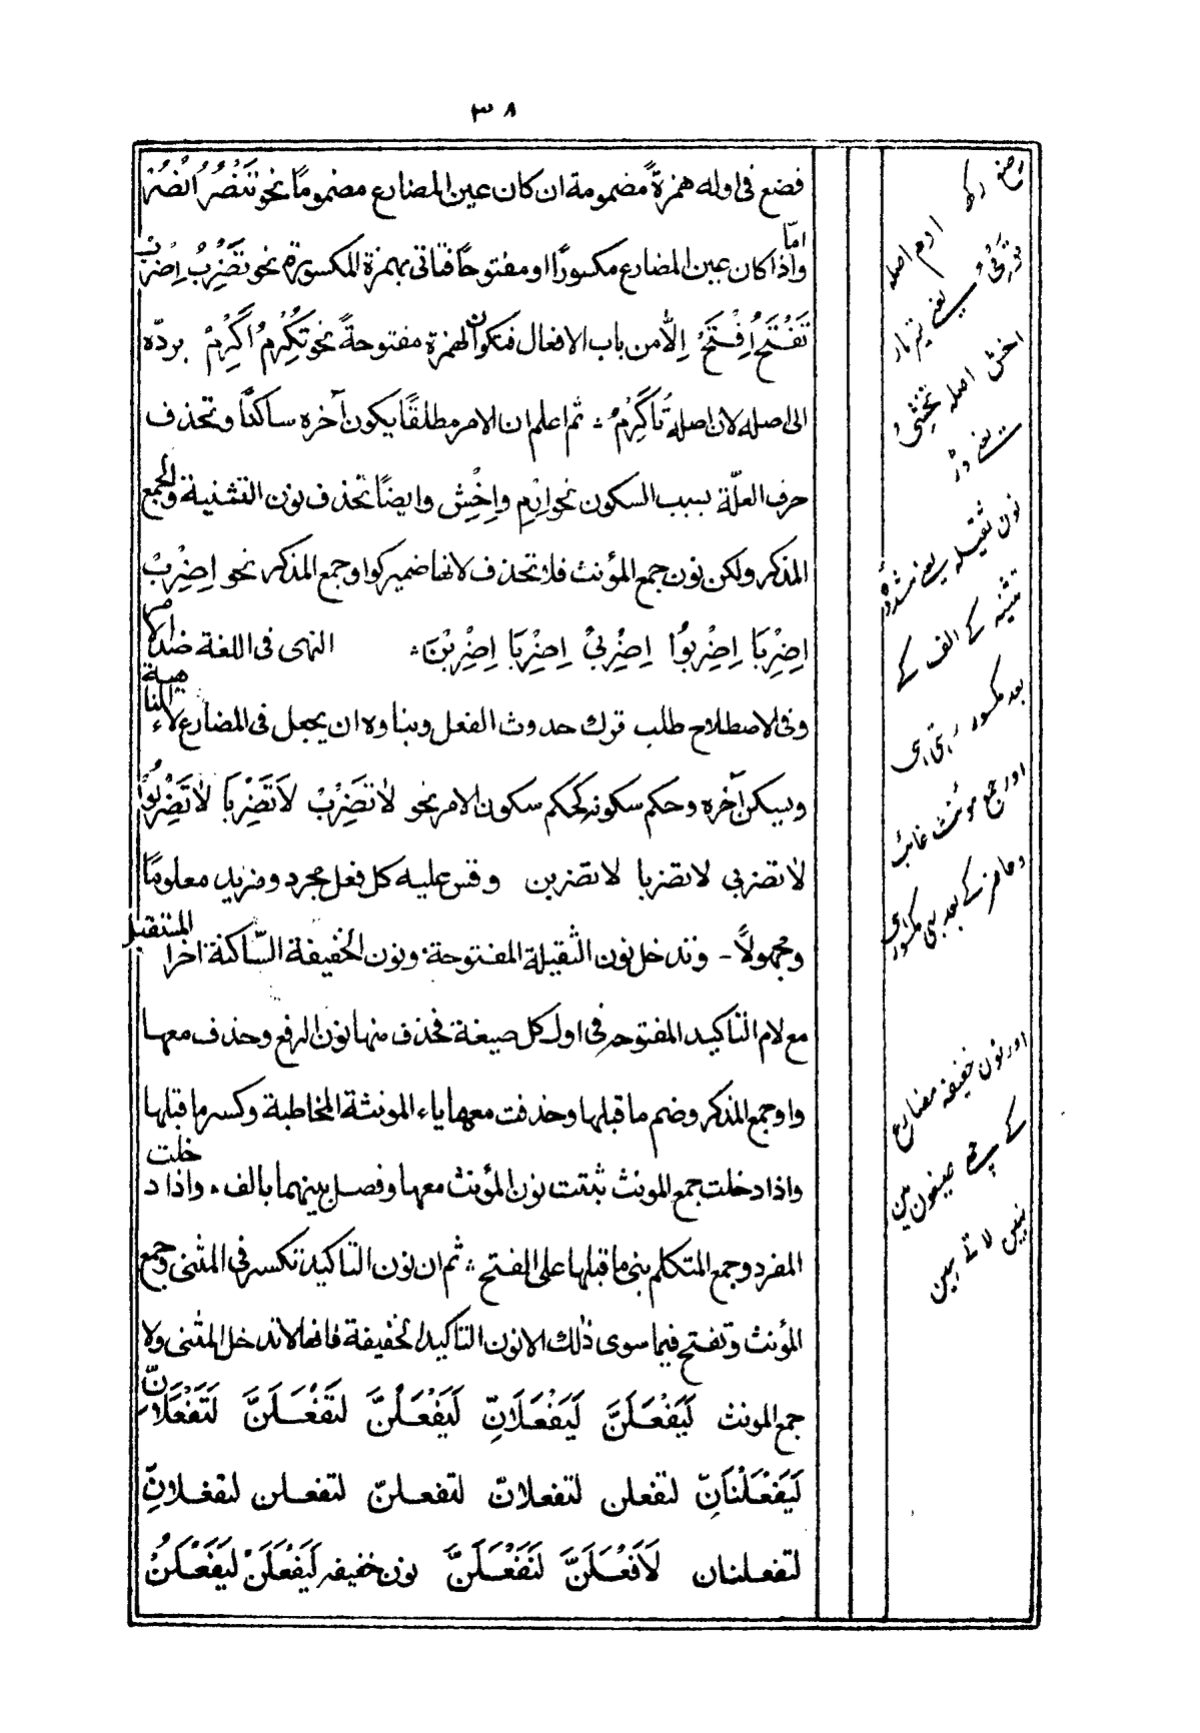 ٣٨
فضع فى اوله همزةً مضمومة ان كان عين المضارع مضموما نحو تَنْصُرُ اُنْصُرْ
واما اذا كان عين المضارع مكسورًا او مفتوحًا فتاتى بهمزة المكسورة نحو تَضْرِبُ اِضْرِبْ
تَفْتَحُ اِفْتَحْ اِلّا من باب الافعال فتكون الهمزة مفتوحةً نحو تُكْرِمُ اَكْرِمْ بردّه
الى اصله لان اصله تُأَكْرِمُ ؞ ثم اعلم ان الامر مطلقًا يكون آخره ساكنًا وتحذف
حرف العلّة بسبب السكون نحو اِرْمِ واِخْشَ وايضًا تحذف نون التثنية والجمع
المذكر ولكن نون جمع المؤنث فلا تحذف لانها ضمير كواو جمع المذكر نحو اِضْرِبْ
اِضْرِبَا اِضْرِبُوْا اِضْرِبِيْ اِضْرِبَا اِضْرِبْنَ ؞ النهى فى اللغة ضد الامر
وفى الاصطلاح طلب ترك حدوث الفعل وبناوه ان يجعل فى المضارع لاء الناهية
ويسكن آخره وحكم سكونه كحكم سكون الامر نحو لاَتَضْرِبْ لاَتَضْرِبَا لاَتَضْرِبُوْا
لاتضربى لاتضربا لاتضربن وقس عليه كل فعل مجرد ومزيد معلومًا
ومجهولًا - وتدخل نون الثقيلة المفتوحة ونون الخفيفة السّاكنة اخرا المستقبل
مع لام التاكيد المفتوحه فى اول كل صيغة فحذف منها نون الرفع وحذف معها
واو جمع المذكر وضم ما قبلها وحذفت معها ياء المونثة المخاطبة وكسر ما قبلها
واذا دخلت جمع المونث ثبتت نون المؤنث معها وفصل بينهما بالف ء واذا دخلت
المفرد وجمع المتكلم بنى ما قبلها على الفتح ؞ ثم ان نون التاكيد تكسر فى المثنى وجمع
المؤنث وتفتح فيما سوى ذلك الا نون التاكيد الخفيفة فانها لا تدخل المثنى ولا
جمع المونث لَيَفْعَلَنَّ لَيَفْعَلَانِّ لَيَفْعَلُنَّ لَتَفْعَلَنَّ لَتَفْعَلَانِّ
لَيَفْعَلْنَانِّ لتفعلن لتفعلانّ لتفعلنّ لتفعلن لتفعلانِّ
لتفعلنان لَاَفْعَلَنَّ لَنَفْعَلَنَّ نون خفيفه لَيَفْعَلَنْ لَيَفْعَلُنْ
ادم اصله
ترمى
اخش اصله تخشى
يعنے ڈر
نون ثقيله يعنے مشدد
تثنيه کے الف کے
بعد مکسور رہتی ہی
اور جمع مونث غائب
وحاضر کے بعد بھی مکسور
اور نون خفيفه مضارع
کے صيغون مين
نہيں لاتے ہين